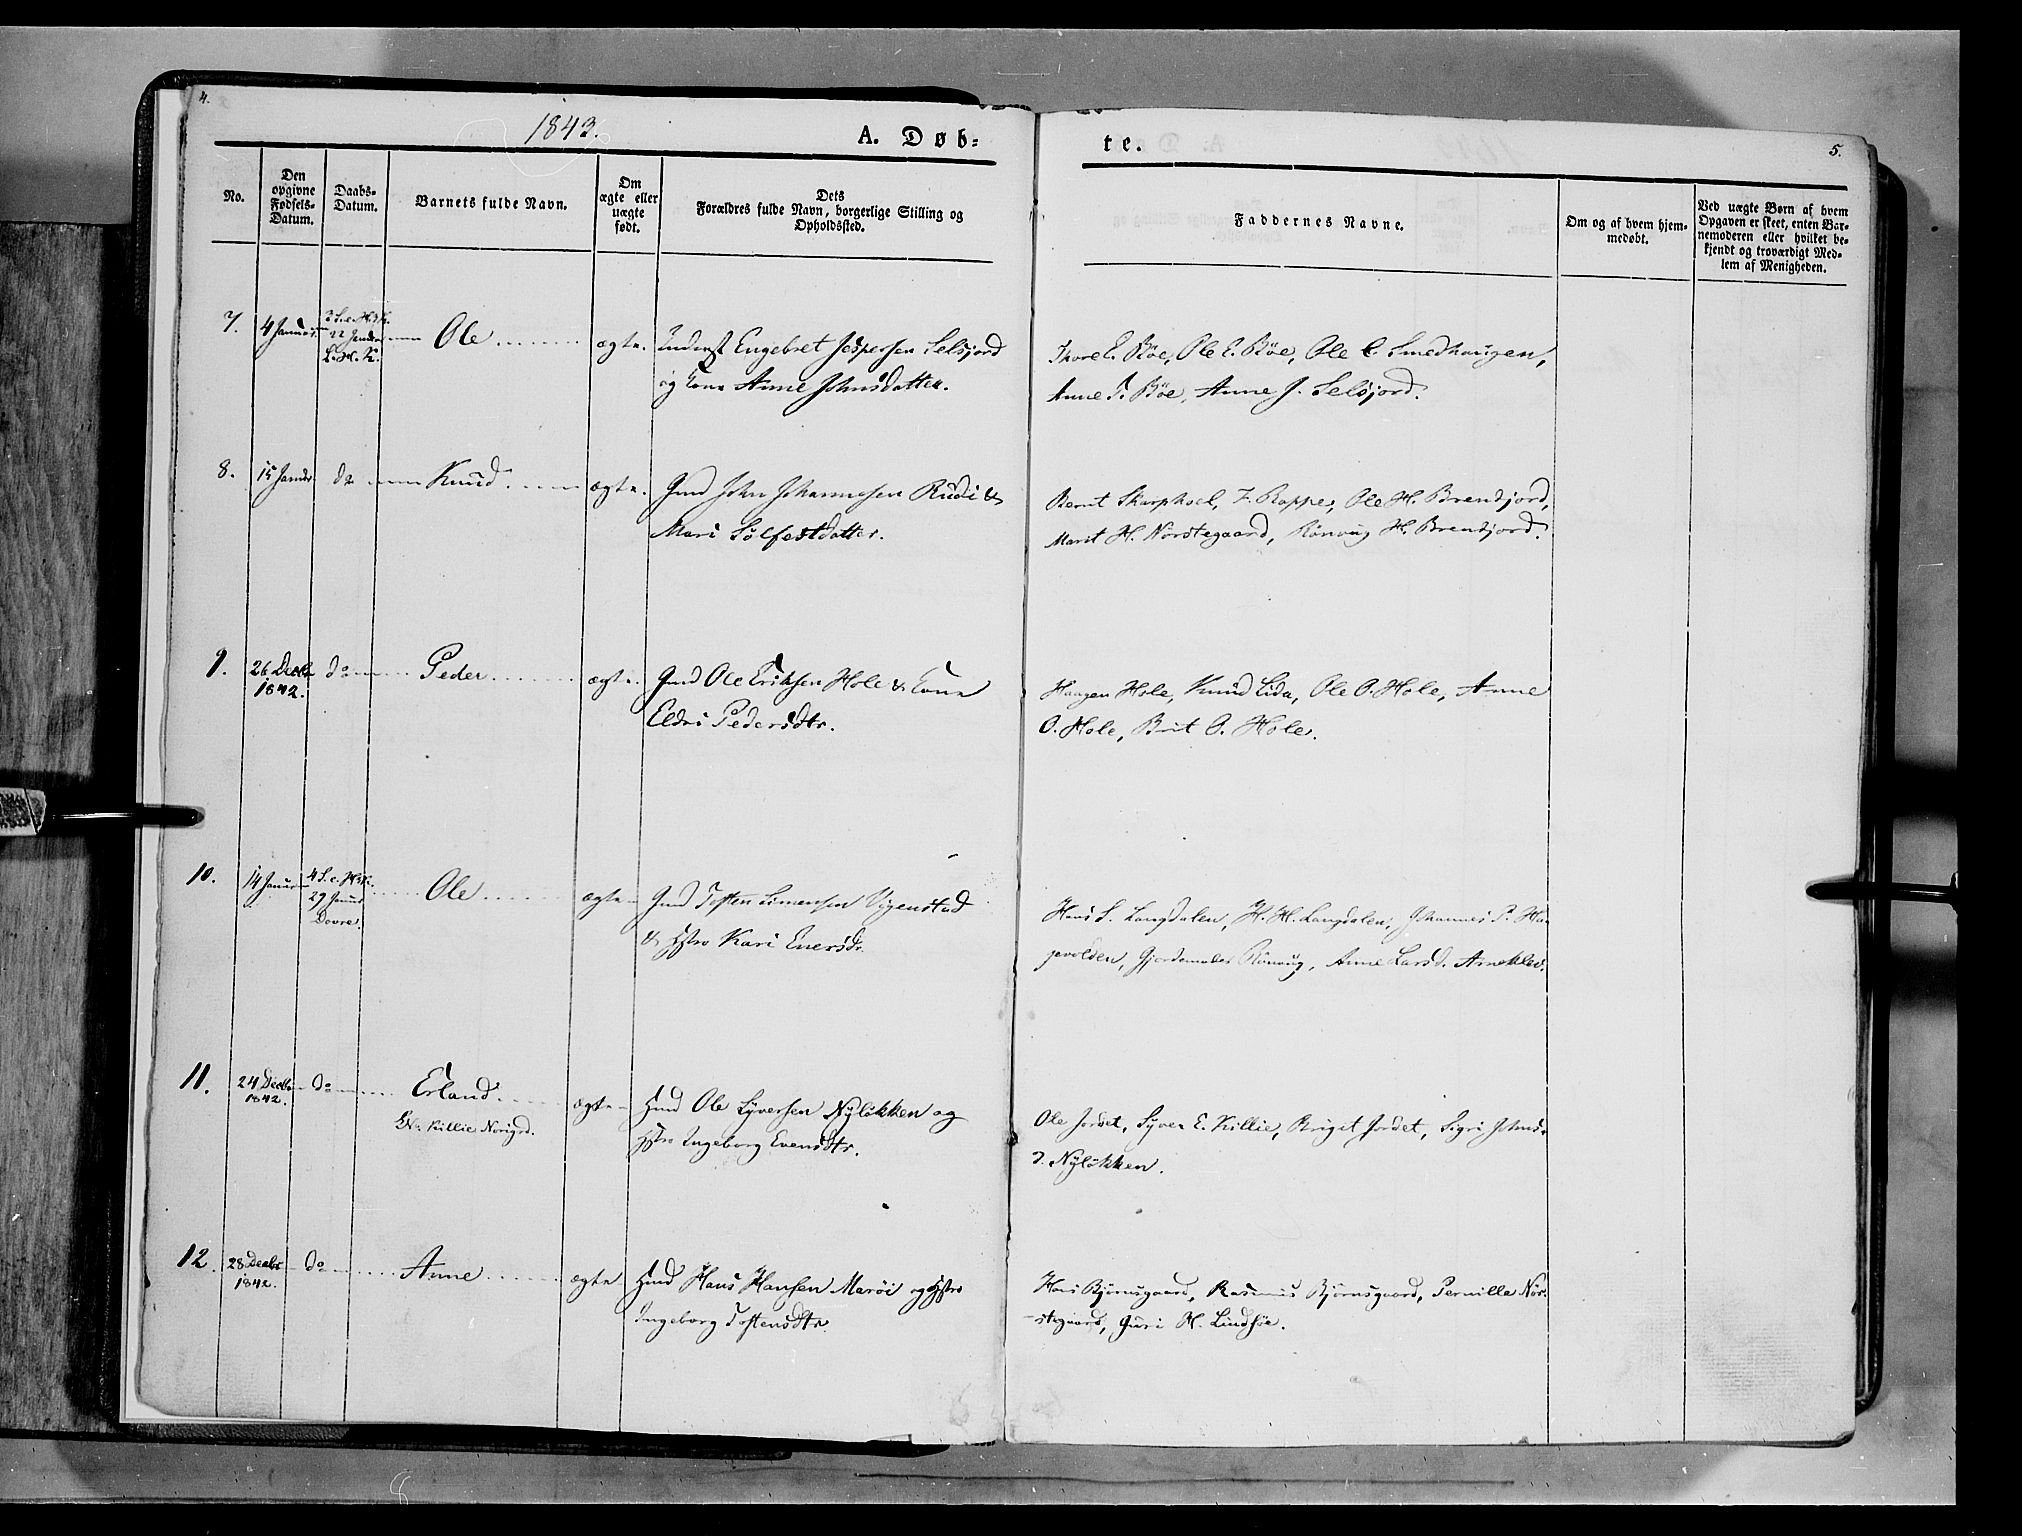 4.
1843.
A. Døb-
te.
5.
No.
Den opgivne Fødsels-Datum.
Daabs-Datum.
Barnets fulde Navn.
Om ægte eller uægte født.
Dets Forældres fulde Navn, borgerlige Stilling og Opholdssted.
Faddernes Navne.
Om og af hvem hjem-medøbt.
Ved uægte Børn af hvem Opgaven er skeet, enten Bar-nemoderen eller hvilket be-kjendt og troværdigt Med-lem af Menigheden.
7.
4 Januar
2 S. e. H. 3 K.
22 Januar
L. H. K.
Ole
ægte.
Inderst Engebret Jespersen Selsjord
og Kone Anne Johnsdatter.
Thore E. Böe, Ole E. Böe, Ole C. Smedhaugen,
Anne T. Böe, Anne J. Selsjord.
8.
15 Januar
do
Knud
ægte.
Gmd John Johannesen Rudi &
Mari Sølfestdatter.
Bernt Skarphoel, Z. Rappe, Ole H. Brendjord,
Marit H. Nörstegaard, Rönnoug H. Brendjord.
9.
26 Decbr
1842.
do
Peder
ægte.
Gmd Ole Eriksen Hole & Kone
Eldri Pedersdtr.
Haagen Hole, Knud Lida, Ole O. Hole, Anne
O. Hole, Brit O. Hole.
10.
14 Januar
4 S. e. H. 3 K.
29 Januar
Dovre
Ole
ægte
Gmd Tosten Simensen Vigenstad
& Hstro Kari Enersdr.
Hans S. Langdalen, H. H. Langdalen, Johannes P. Ha-
gevolden, Gjordemoder Rönnoug, Anne Larsd. Arneklev.
11.
24 Decbr
1842.
do
Erland.
Killie Norigrd.
ægte
Hmd Ole Syversen Nyløkken og
Hstro Ingeborg Evensdtr.
Ole Jordet, Syver E. Killie, Birgit Jordet, Sigri Johns-
d. Nyløkken.
12.
28 Decbr
1842.
do
Anne
ægte
Hmd Hans Hansen Maröi og Hstro
Ingeborg Tostensdtr.
Hans Bjørnsgaard, Rasmus Bjørnsgaard, Pernille Nör-
-stegaard, Guri H. Lindsöe.
8